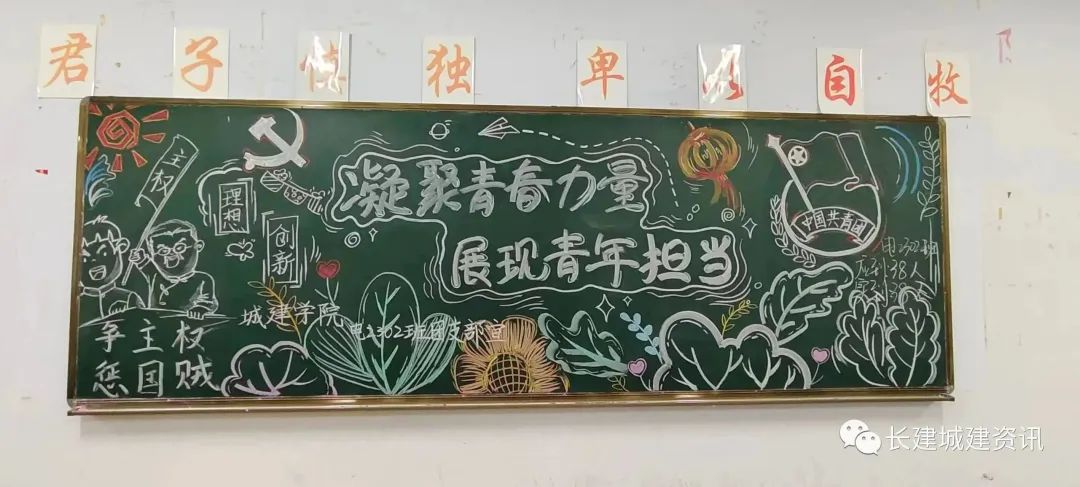 君子慎独卑以自牧
主权
理想
创新
凝聚青春力量
展现青年担当
中国共青团
应到:38人
实到:38人
城建学院
电2302班团支部宣
争主权
惩国贼
长建城建资讯